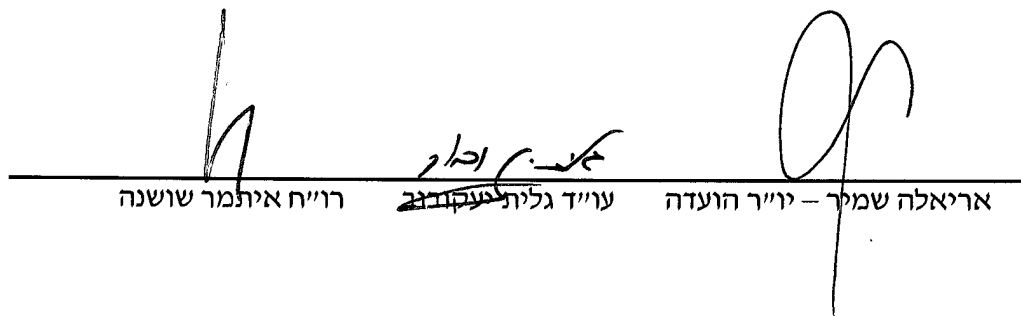 אריאלה שמיר – יו״ר הועדה עו״ד גלית יעקובוב רו״ח איתמר שושנה